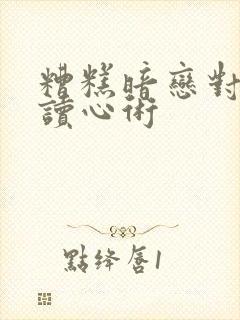 糟糕暗戀對
讀心術
點絳唇1